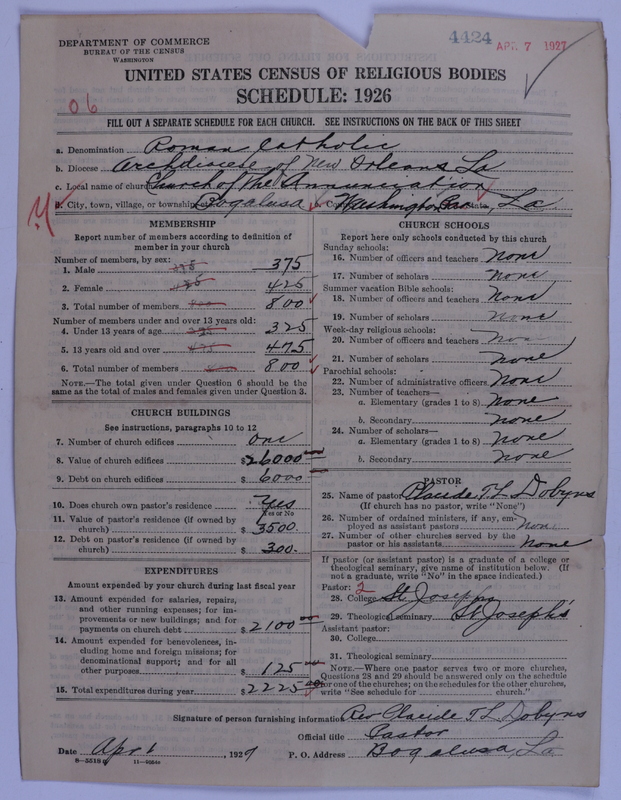 4424
APR 7 1927
DEPARTMENT OF COMMERCE
BUREAU OF THE CENSUS
WASHINGTON
UNITED STATES CENSUS OF RELIGIOUS BODIES
SCHEDULE: 1926
06
FILL OUT A SEPARATE SCHEDULE FOR EACH CHURCH. SEE INSTRUCTIONS ON THE BACK OF THIS SHEET
a. Denomination Roman Catholic
b. Diocese Archdiocese of New Orleans La
c. Local name of church Church of the Annunciation
d. City, town, village, or township Bogalusa Washington Par., La
MEMBERSHIP
Report number of members according to definition of
member in your church
Number of members, by sex:
1. Male 375
2. Female 425
3. Total number of members 800
Number of members under and over 13 years old:
4. Under 13 years of age 325
5. 13 years old and over 475
6. Total number of members 800
NOTE.—The total given under Question 6 should be the
same as the total of males and females given under Question 3.
CHURCH BUILDINGS
See instructions, paragraphs 10 to 12
7. Number of church edifices one
8. Value of church edifices $26000
9. Debt on church edifices $6000
10. Does church own pastor's residence Yes
Yes or No
11. Value of pastor's residence (if owned by
church) $3500.
12. Debt on pastor's residence (if owned by
church) $300.
EXPENDITURES
Amount expended by your church during last fiscal year
13. Amount expended for salaries, repairs,
and other running expenses; for im-
provements or new buildings; and for
payments on church debt $2100
14. Amount expended for benevolences, in-
cluding home and foreign missions; for
denominational support; and for all
other purposes $125
15. Total expenditures during year $2225
CHURCH SCHOOLS
Report here only schools conducted by this church
Sunday schools:
16. Number of officers and teachers None
17. Number of scholars None
Summer vacation Bible schools:
18. Number of officers and teachers None
19. Number of scholars None
Week-day religious schools:
20. Number of officers and teachers None
21. Number of scholars None
Parochial schools:
22. Number of administrative officers None
23. Number of teachers—
a. Elementary (grades 1 to 8) None
b. Secondary None
24. Number of scholars—
a. Elementary (grades 1 to 8) None
b. Secondary None
PASTOR
25. Name of pastor Placide T. L. Dobyns
(If church has no pastor, write "None")
26. Number of ordained ministers, if any, em-
ployed as assistant pastors None
27. Number of other churches served by the
pastor or his assistants None
If pastor (or assistant pastor) is a graduate of a college or
theological seminary, give name of institution below. (If
not a graduate, write "No" in the space indicated.)
Pastor: 2
28. College St Josephs
29. Theological seminary St Joseph's
Assistant pastor:
30. College
31. Theological seminary
NOTE.—Where one pastor serves two or more churches,
Questions 28 and 29 should be answered only on the schedule
for one of the churches; on the schedules for the other churches,
write "See schedule for church."
Signature of person furnishing information Rev Placide T L Dobyns
Official title Pastor
Date Apr 6, 1927 P. O. Address Bogalusa, La
8—5518